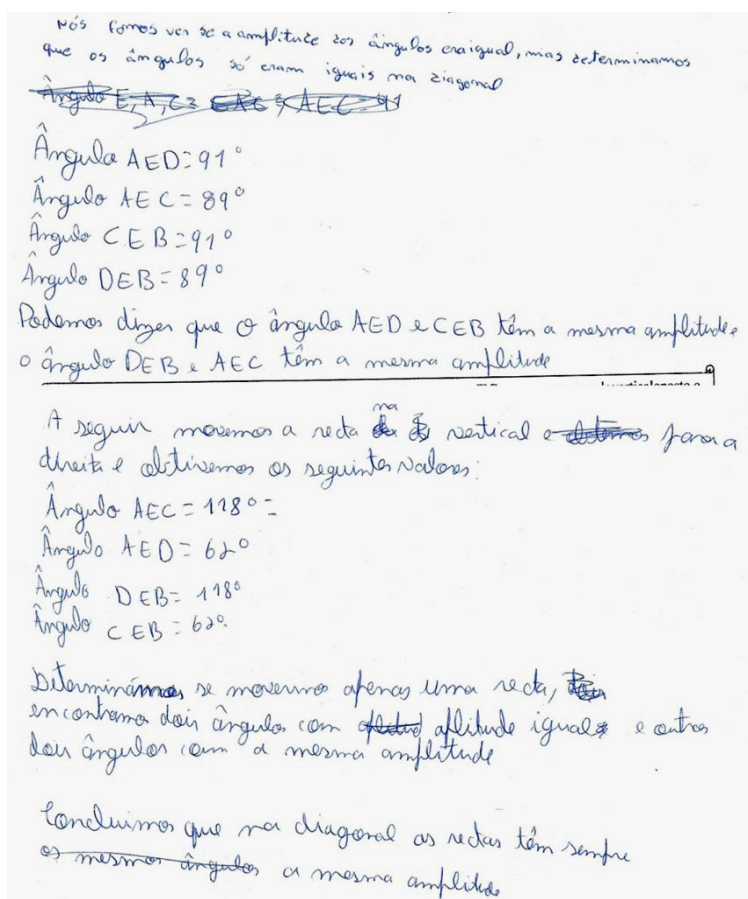 Nós fomos ver se a amplitude dos ângulos era igual, mas determinamos
que os ângulos só eram iguais na diagonal
Ângulo E, A, C = EAC AEC = 91
Ângulo AED = 91°
Ângulo AEC = 89°
Ângulo CEB = 91°
Ângulo DEB = 89°
Podemos dizer que o ângulo AED e CEB têm a mesma amplitude e
o ângulo DEB e AEC têm a mesma amplitude
A seguir movemos a recta na vertical e para a
direita e obtivemos os seguintes valores:
Ângulo AEC = 118° =
Ângulo AED = 62°
Ângulo DEB = 118°
Ângulo CEB = 62°.
Determinámos se movermos apenas uma recta,
encontramos dois ângulos com aflitude igual e outros
dois ângulos com a mesma amplitude
Concluimos que na diagonal as rectas têm sempre
os mesmos ângulos a mesma amplitude